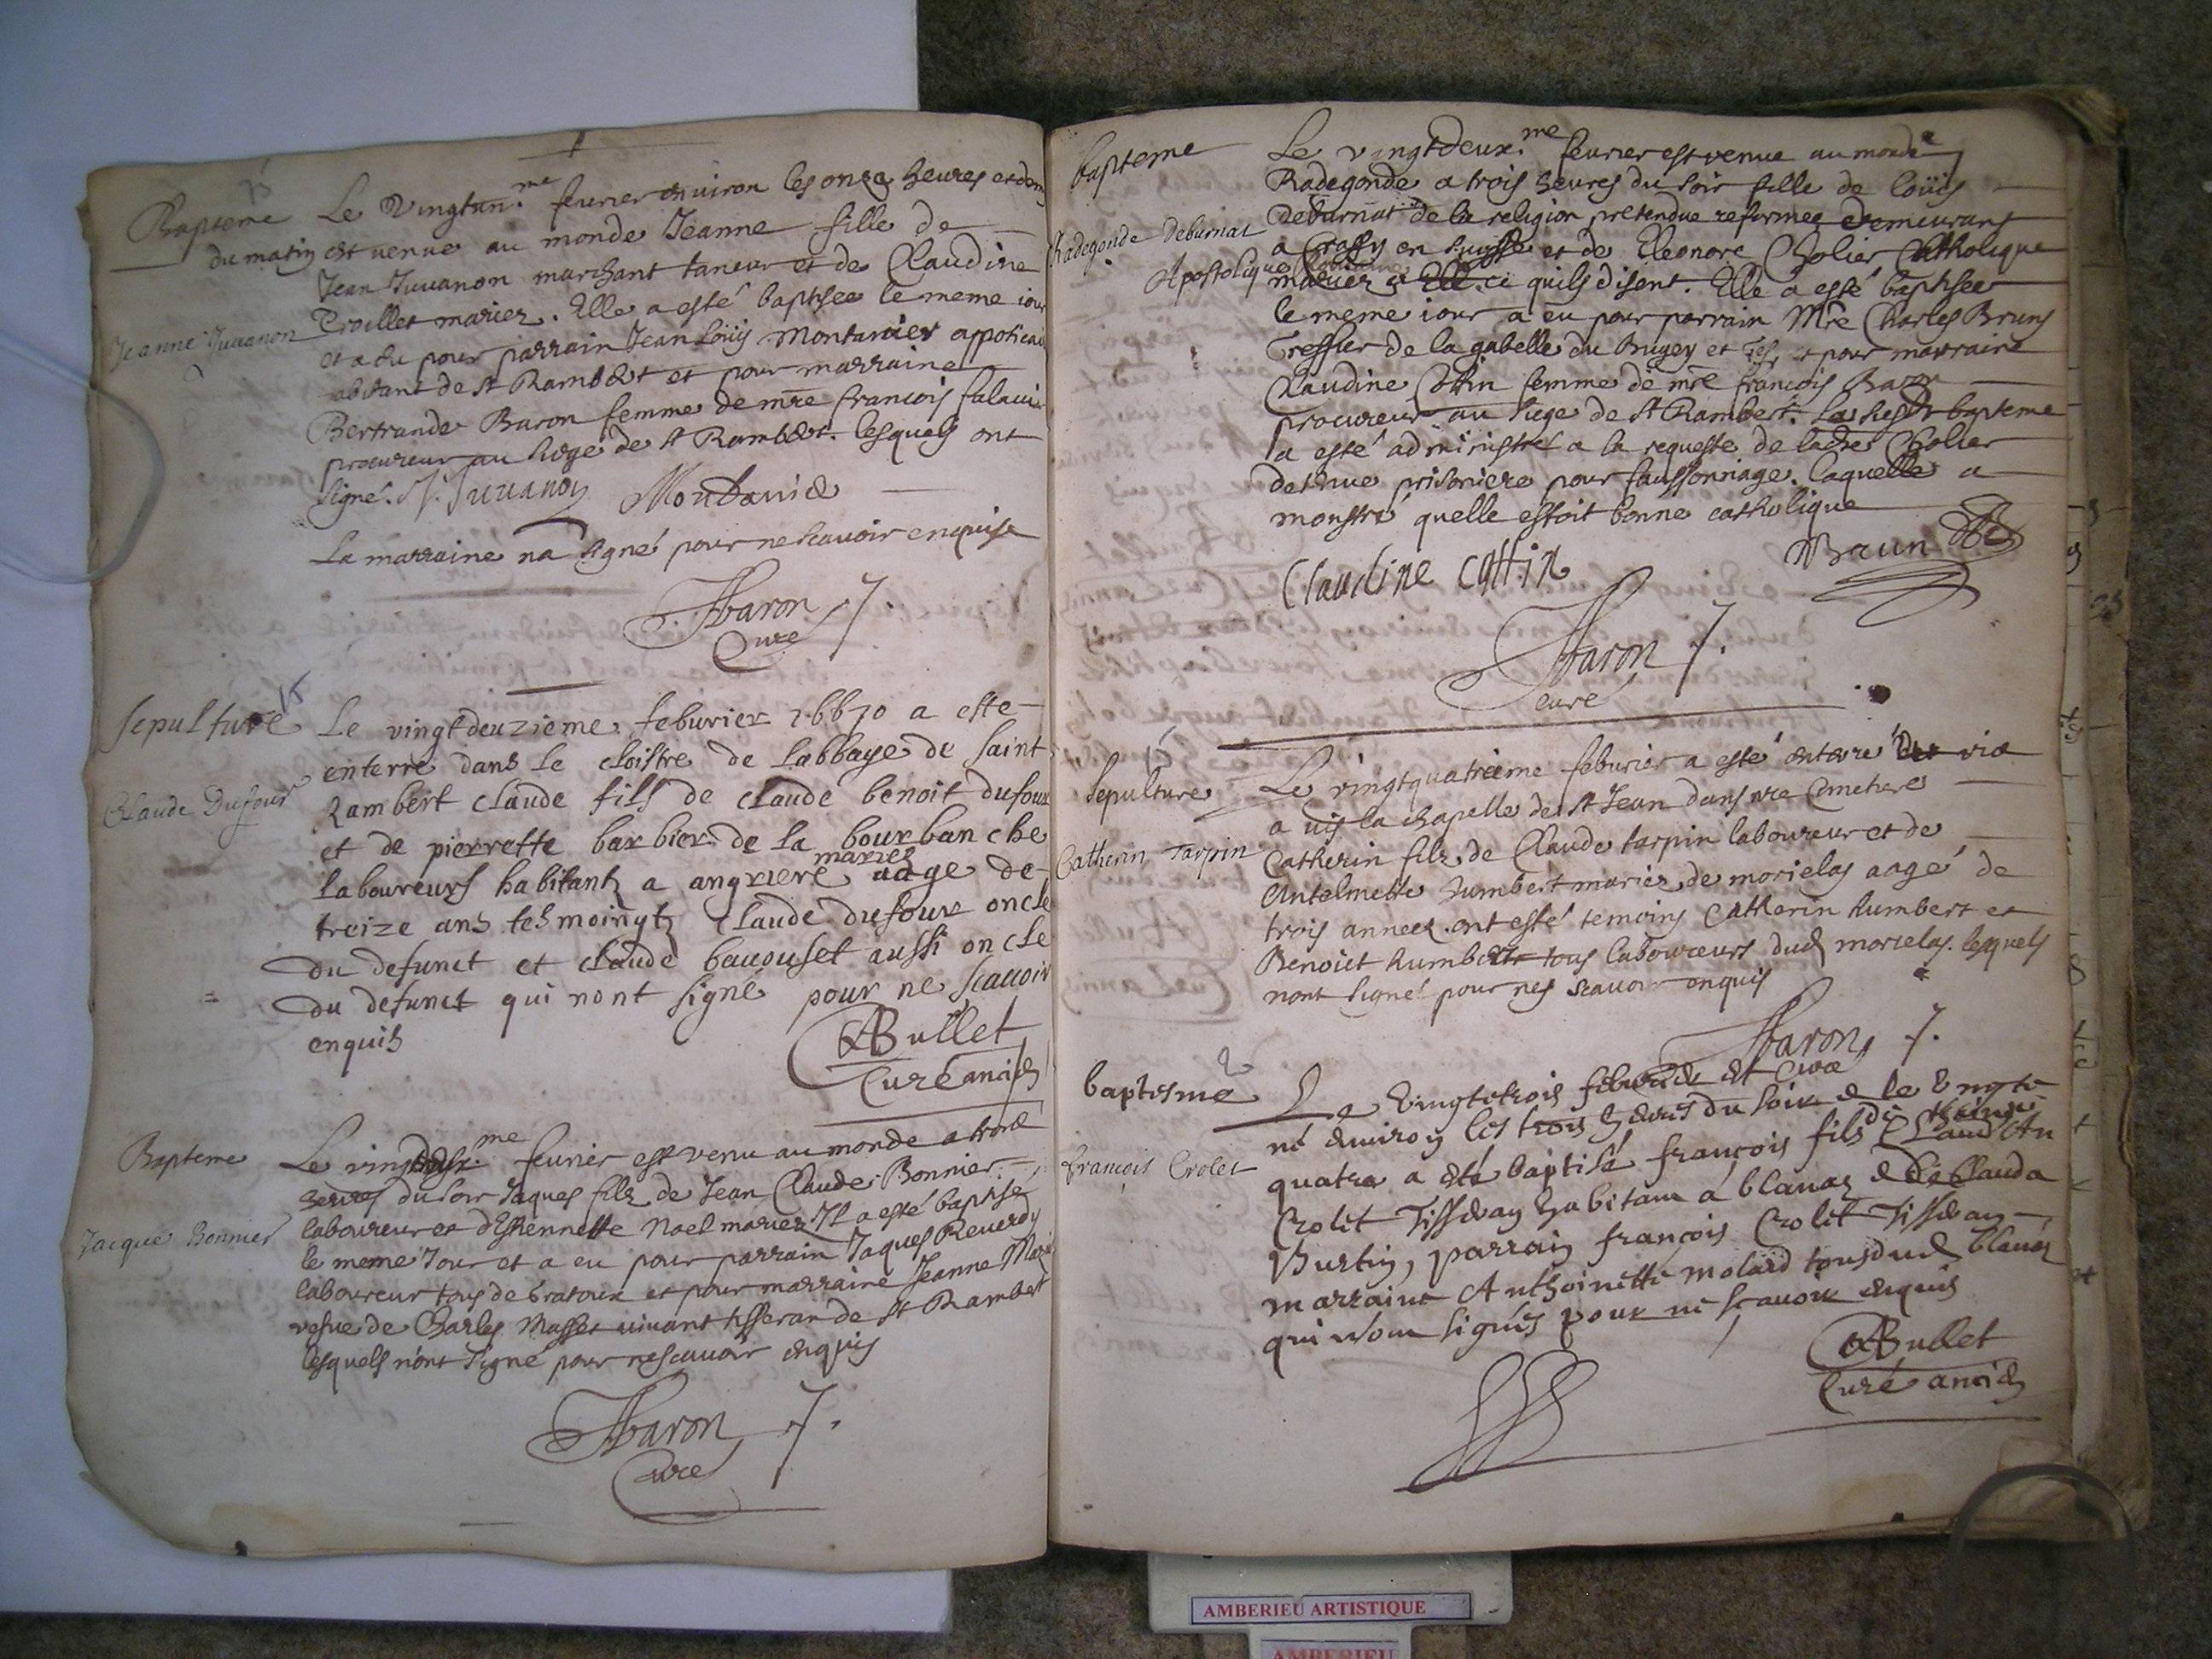 Bapteme
Le vingtun.me feurier enuiron les onze heures et demy
du matin est venue au monde Jeanne fille de
Jean Juuanon marchant taneur et de Claudine
Jeanne Juuanon
Proullet mariez. Elle a esté baptisee le meme iour
et a eu pour parrain Jean Louys Montanier appoticai
abitant de st Rambert et pour marraine
Bertrande Baron femme de mre francois
procureur au siege de st Rambert. lesquels ont
signé. J. Juuanon Montanier
La marraine na signé pour ne scauoir enquise
Baron J.
Curé
sepulture
15
Le vingtdeuzieme feburier 1670 a este
enterré dans le cloistre de labbaye de saint
Claude Dufour
Rambert claude fils de claude benoit dufour
et de pierrette barbier de la bourbanche
laboureurs habitant a angriere mariez aage de
treize ans tesmoingtz claude dufour oncle
du defunct et claude bacouset aussi oncle
du defunct qui nont signé pour ne scauoir
enquis
Bullet
Curé ancien
Bapteme
Le feurier est venu au monde a trois
heures du soir Jaques filz de Jean Claude Bonnier
Jacque Bonnier
laboureur et d'Estiennette Noel mariez Il a esté baptisé
le meme Jour et a eu pour parrain Jaques Reuerdy
laboureur tous de bratoux et pour marraine Jeanne
vefue de Charles Masset viuant tisseran de st Rambert
lesquels n'ont signé pour ne scauoir enquis
Baron J.
Curé
bapteme
Le vingtdeux.me feurier est venue au monde
Radegonde a trois heures du soir fille de loüis
Radegonde deburnat
deburnat de la religion pretendue reformee demeurant
a Crassy en suysse et de Eleonore Cholier Catholique
Apostolique Romaine mariez a ce quils disent. Elle a esté baptisee
le meme iour a eu pour parrain Mre Charles Brun
Greffier de la gabelle du Bugey et Gex, et pour marraine
Claudine Cottin femme de mre françois Baron
procureur au siege de st Rambert. bapteme
a esté administré a la requeste de ladte Cholier
detenue prisoniere pour fauxsonnage. laquelle a
monstré quelle estoit bonne catholique
Claudine cottin
Brun
Baron J.
curé
Sepulture
Le vingtquatrieme feburier a esté enterré vis
a uis la chapelle de st Jean dans nre Cimetiere
Catherin Tarpin
Catherin filz de Claude tarpin laboureur et de
Antelmette humbert mariez de morielas aagé de
trois annees. ont esté temoins Catherin humbert et
Benoict humbert tous laboureurs dud morielas. lesquels
nont signé pour nes scauoir enquis
Baron J.
Curé
baptesme
Le Vingtetrois feburier est
né enuiron les trois heures du soir & le vingte
quatre a esté baptisé françois fils de Claud
François Crolet
Crolet Tisseran habitant a blanaz & de Clauda
Burtin, parrain françois Crolet Tisseran
marraine Anthoinette molard tousdud blanaz
qui n'ont signés pour ne scauoir enquis
Bullet
Curé ancien
AMBERIEU ARTISTIQUE
AMBERIEU